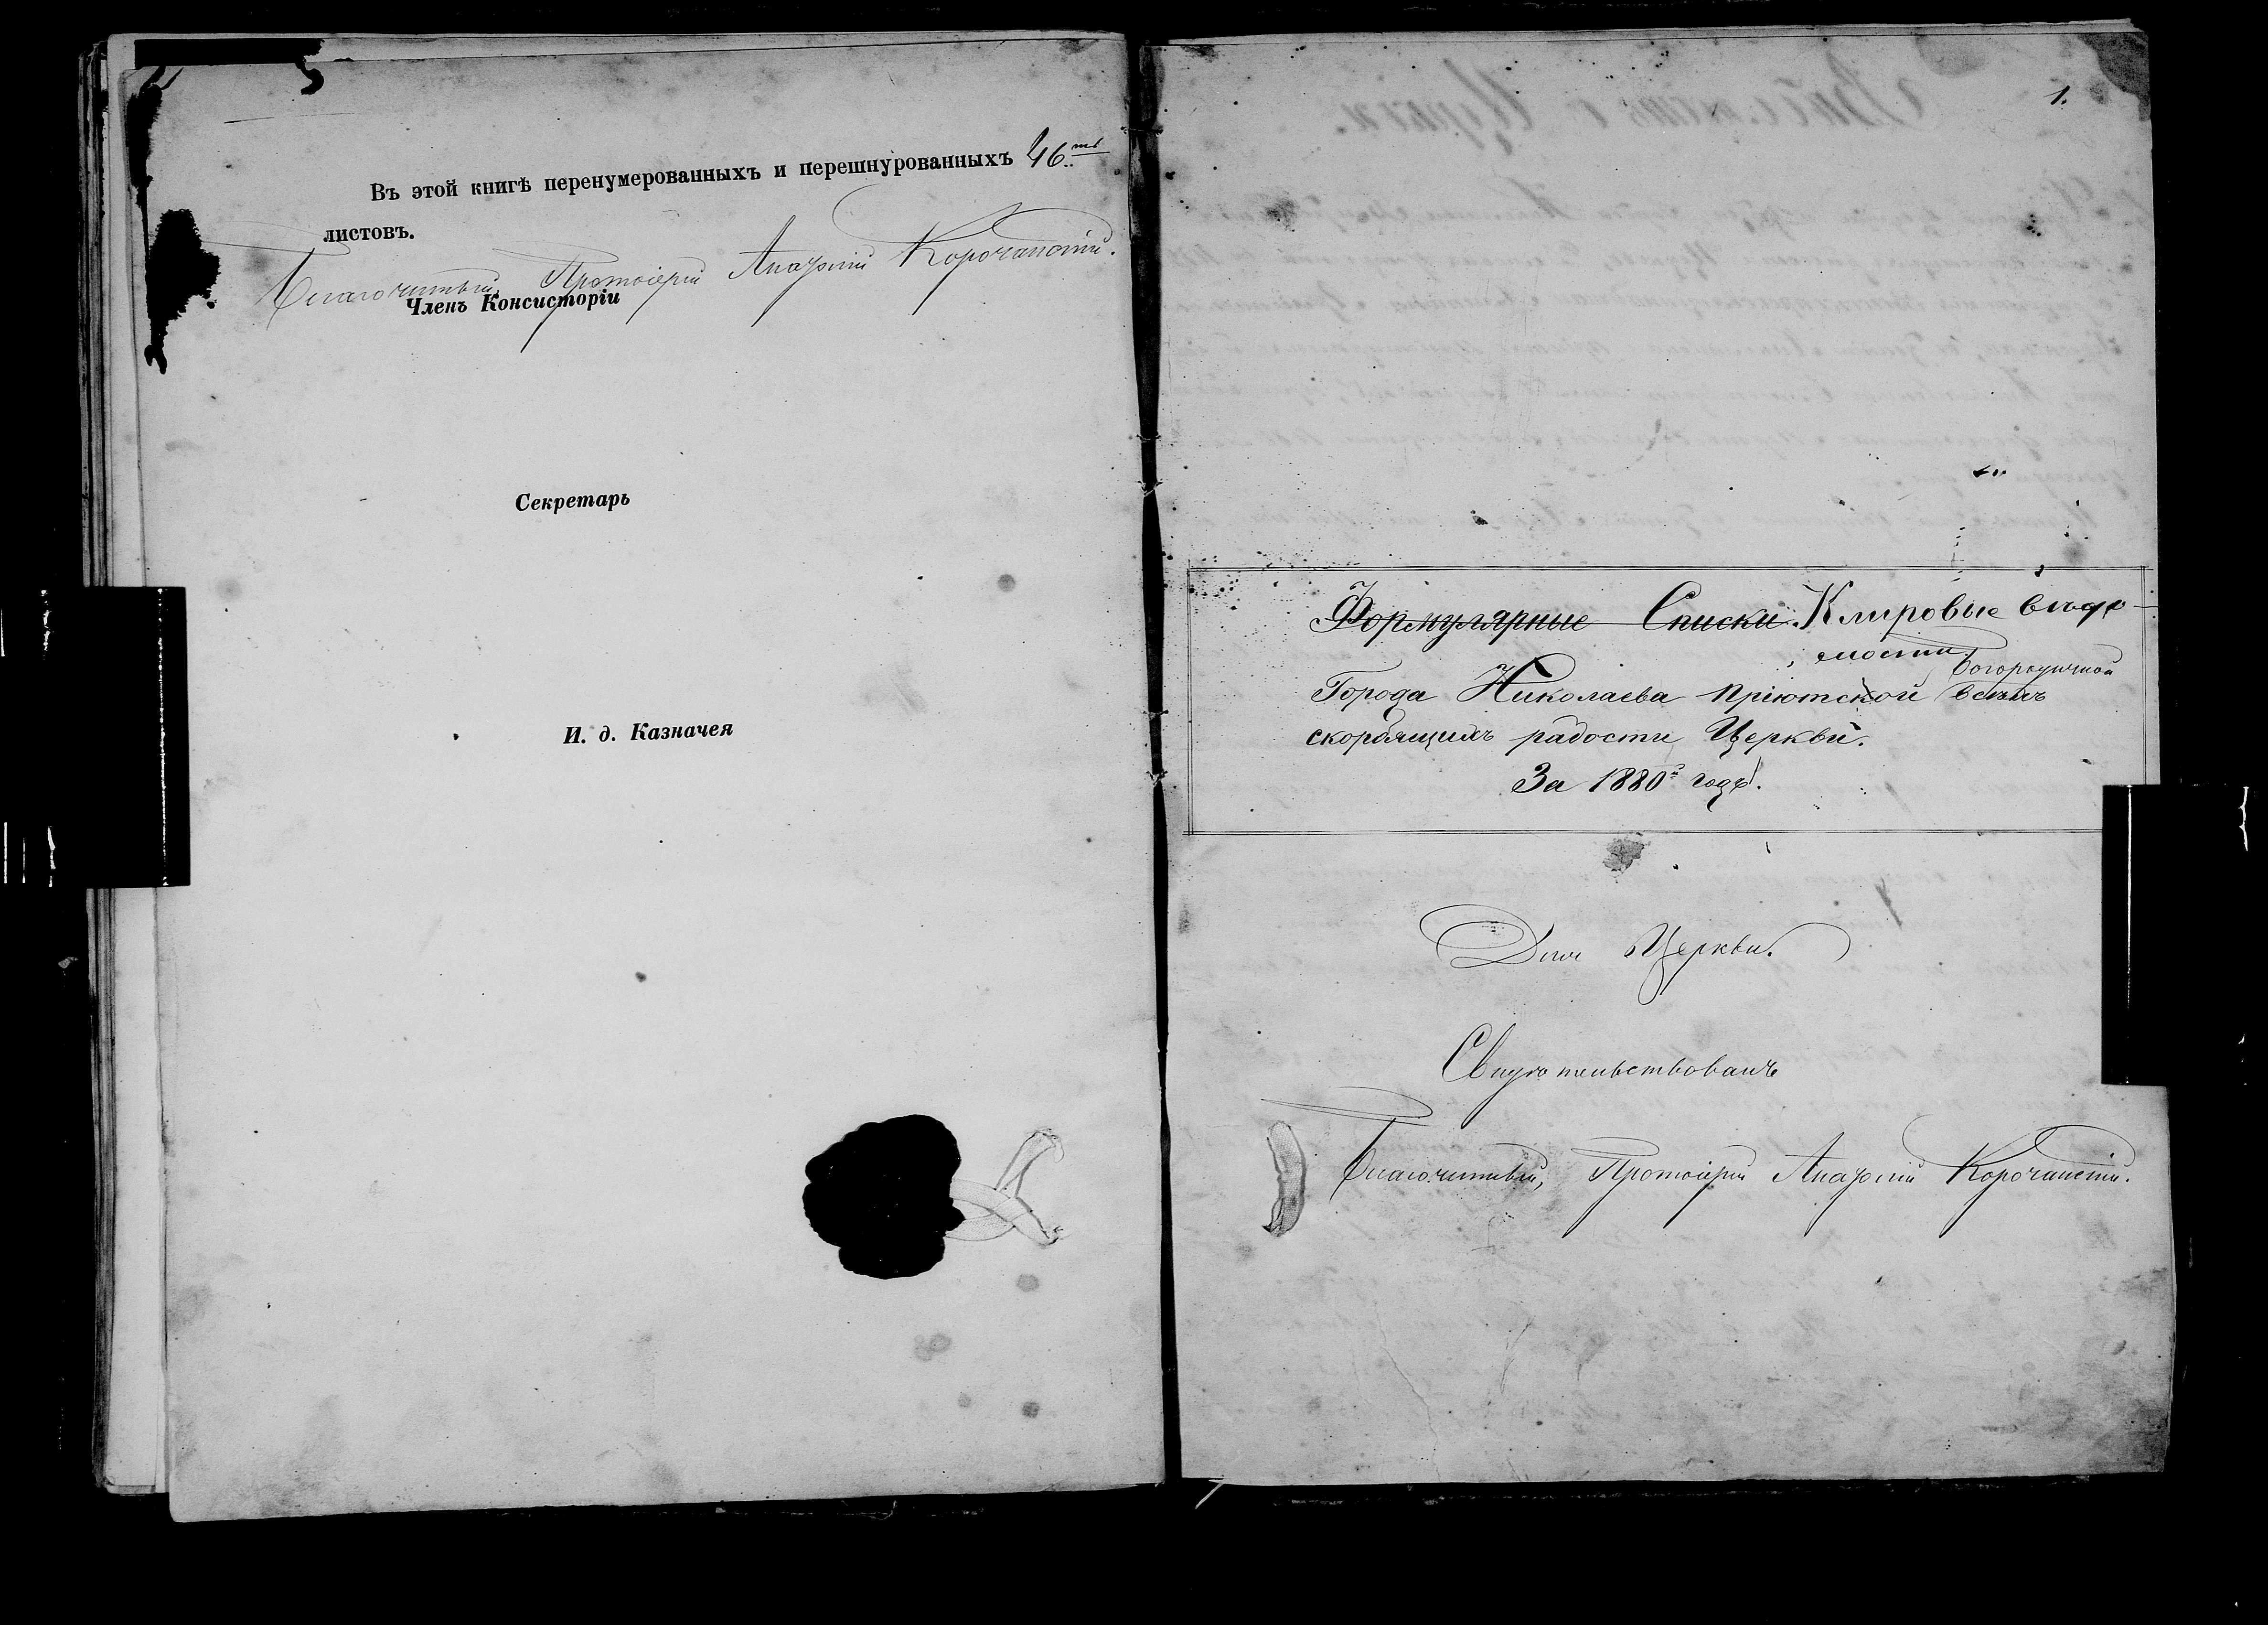 Въ этой книгѣ перенумерованныхъ и перешнурованныхъ 46.ть
листовъ.
Благочинный, Протоіерій Анатолій Корочанскій.
Членъ Консисторіи
Секретарь
И. д. Казначея
1.
Формулярные Списки. Клировые вѣдо-
мости.
Богородичной
Города Николаева пріютской всѣхъ
скорбящихъ радости Церкви.
За 1880й годъ.
Для Церкви.
Свидѣтельствовалъ
Благочинный, Протоіерій Анатолій Корочанскій.